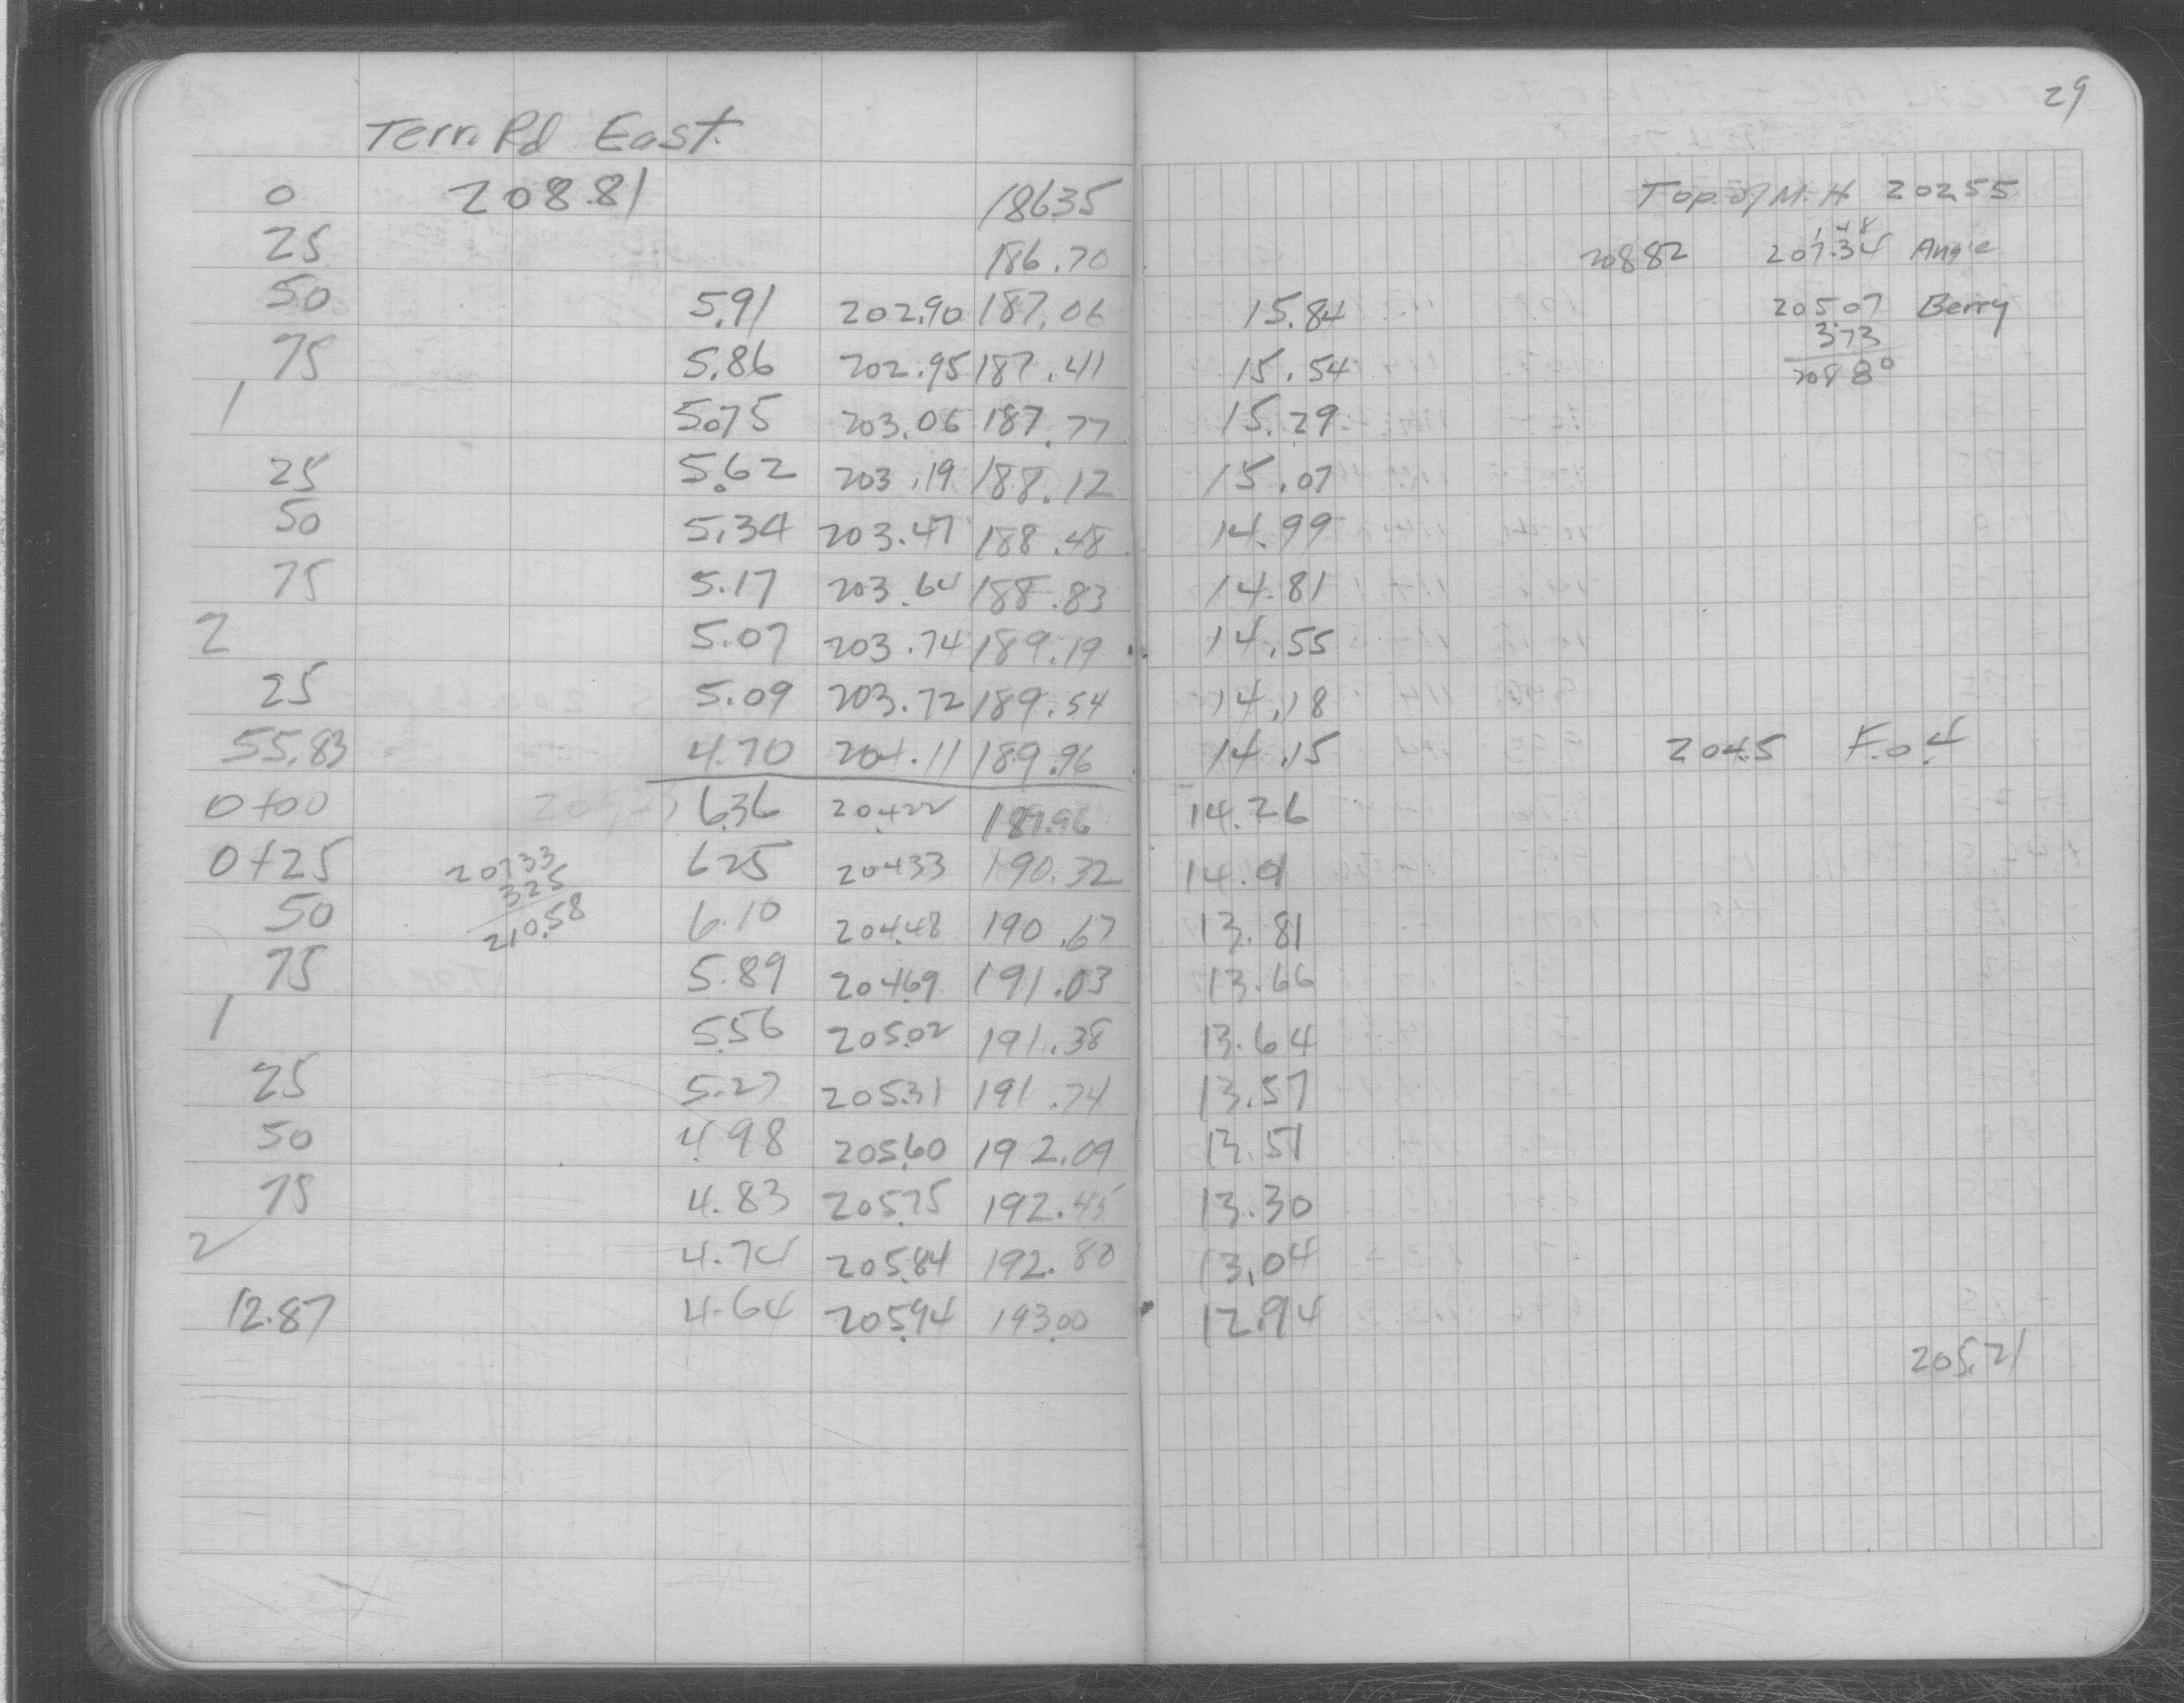 29
Terr. Rd East
0 208.81 186.35 Top of M.H. 202.55
25 186.70 208.82 207.34 1.48 Angie
50 5.91 202.90 187.06 15.84 205.07 Berry
3.73
75 5.86 202.95 187.41 15.54 208.80
1 5.75 203.06 187.77 15.29
25 5.62 203.19 188.12 15.07
50 5.34 203.47 188.48 14.99
75 5.17 203.64 188.83 14.81
2 5.07 203.74 189.19 14.55
25 5.09 203.72 189.54 14.18
55.83 4.70 204.11 189.96 14.15 204.5 F.o.4
0+00 6.36 204.22 189.96 14.26
0+25 207.33 6.25 204.33 190.32 14.01
3.25
50 210.58 6.10 204.48 190.67 13.81
75 5.89 204.69 191.03 13.66
1 5.56 205.02 191.38 13.64
25 5.27 205.31 191.74 13.57
50 4.98 205.60 192.09 13.51
75 4.83 205.75 192.45 13.30
2 4.74 205.84 192.80 13.04
12.87 4.64 205.94 193.00 12.94
205.21